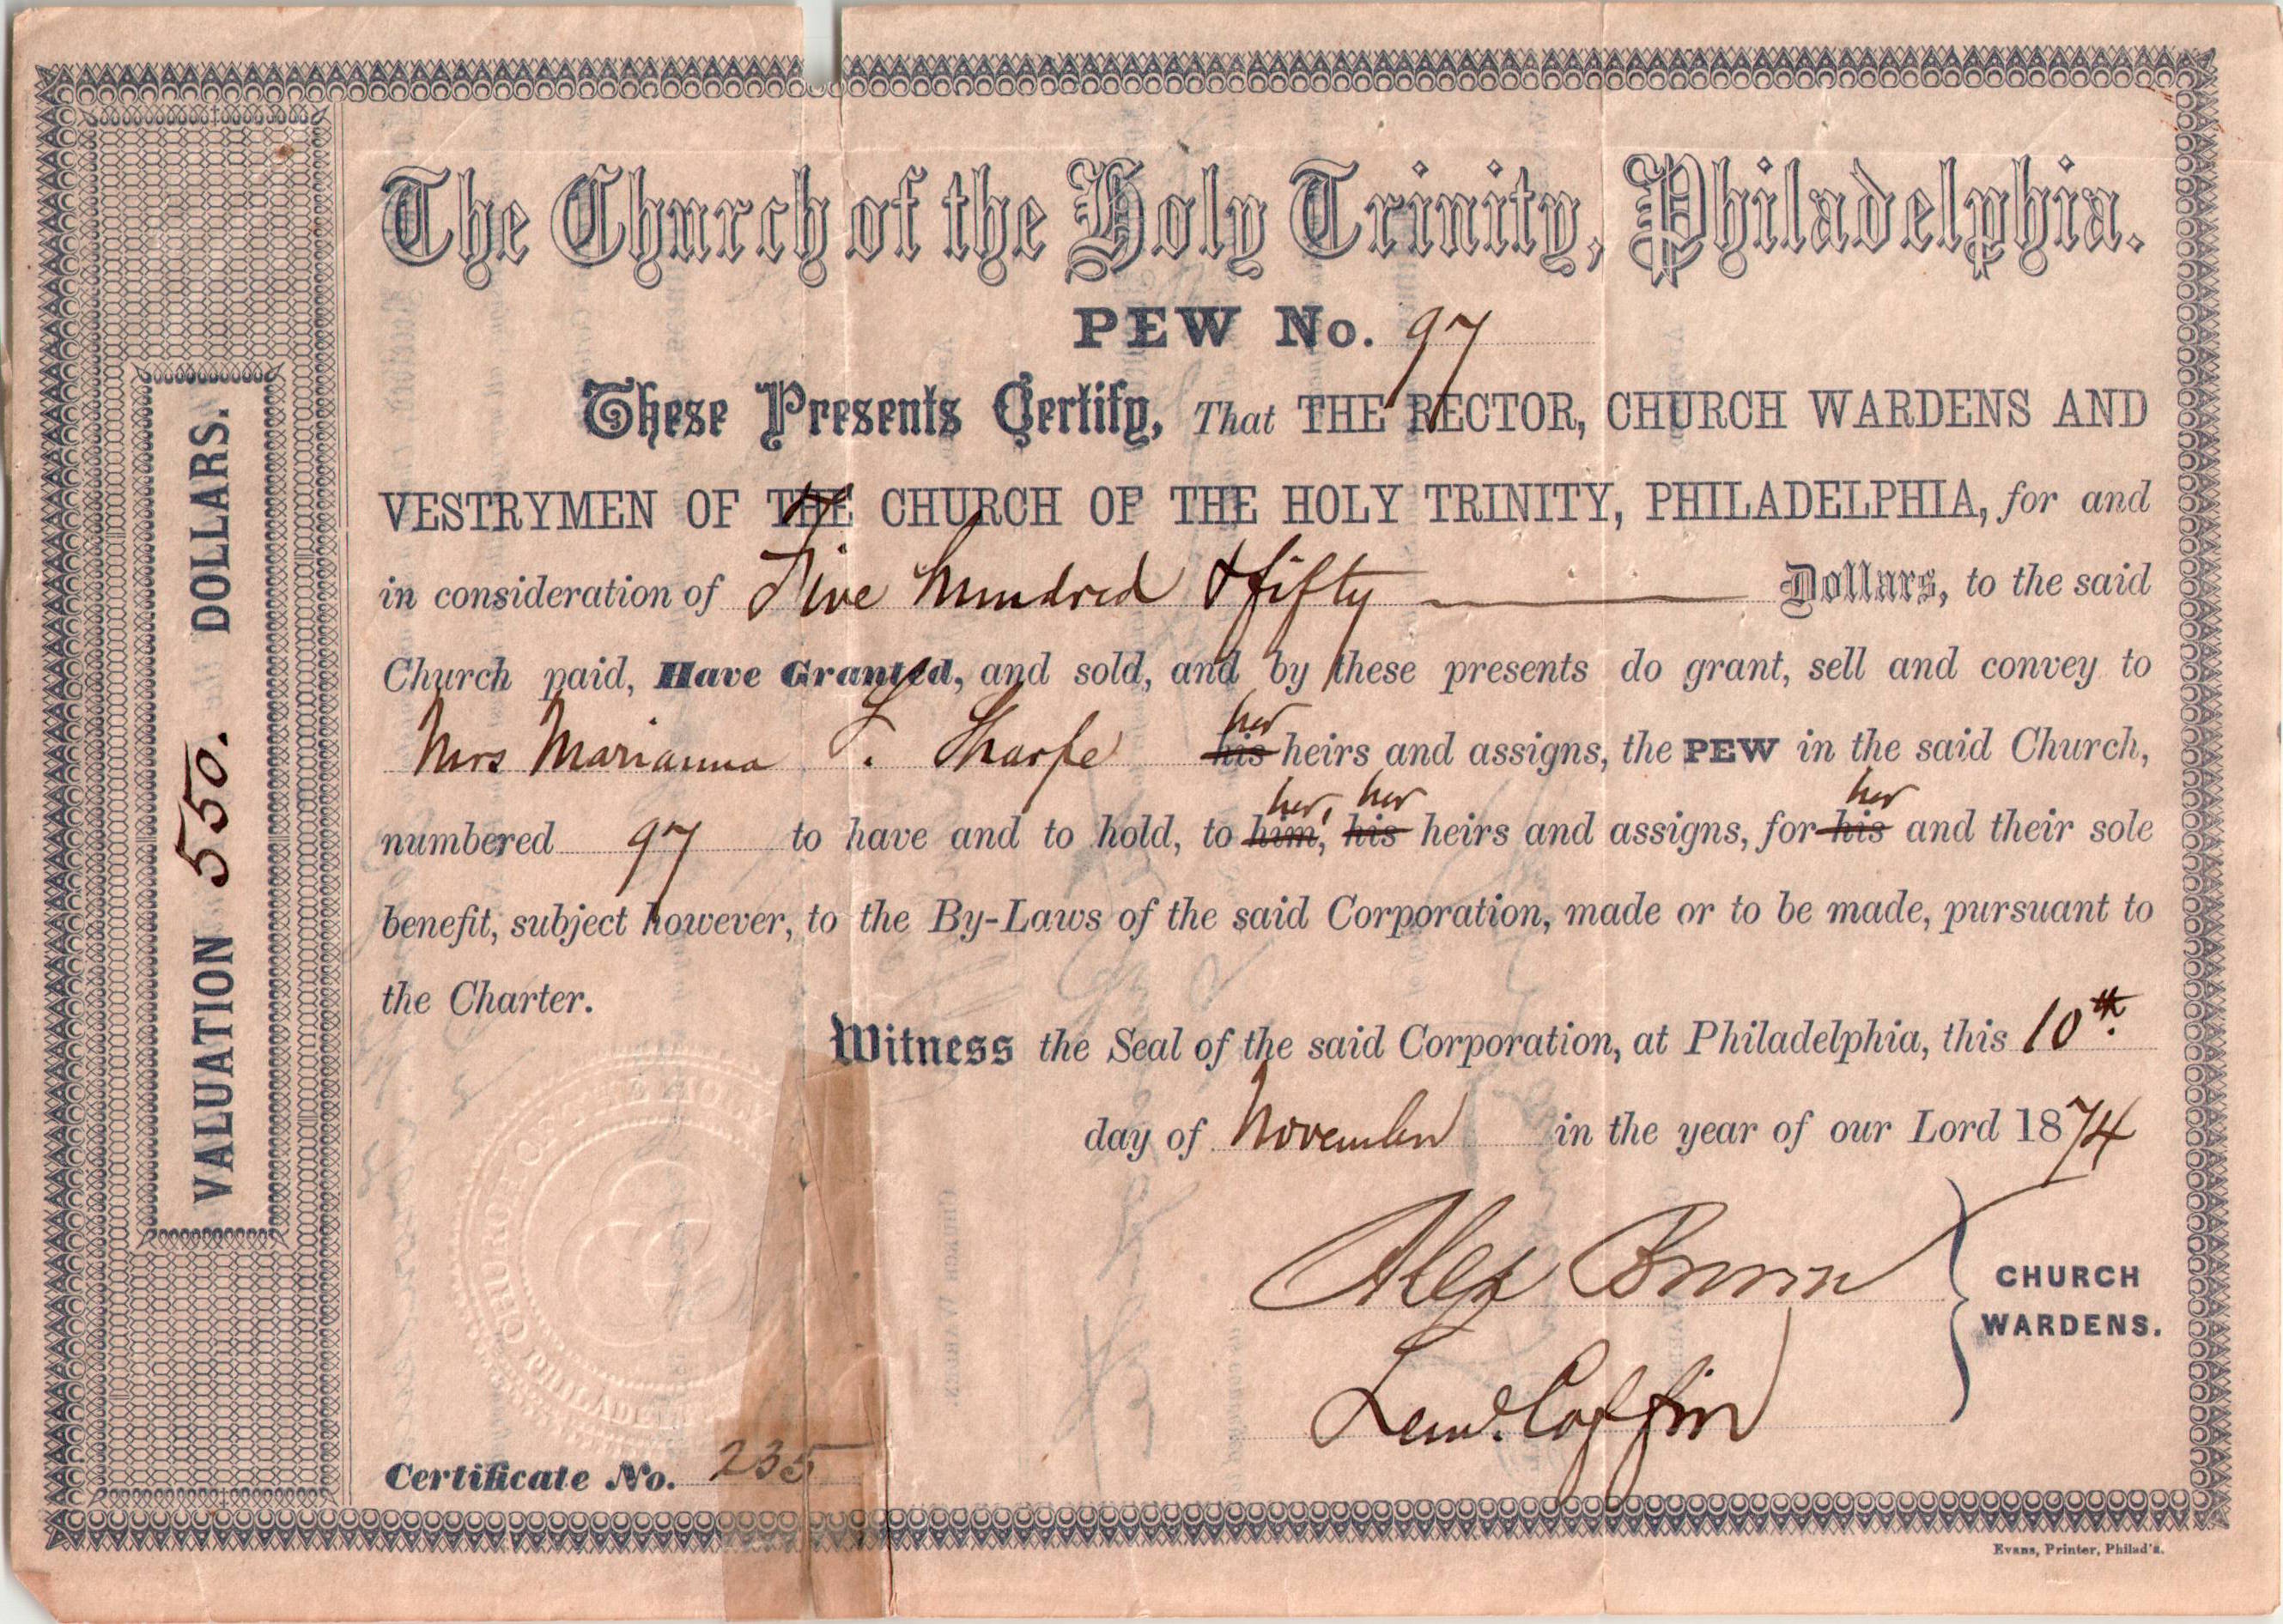 The Church of the Holy Trinity, Philadelphia.
PEW No. 97
These Presents Certify, That THE RECTOR, CHURCH WARDENS AND
VESTRYMEN OF THE CHURCH OF THE HOLY TRINITY, PHILADELPHIA, for and
in consideration of Five hundred & fifty Dollars, to the said
Church paid, Have Granted, and sold, and by these presents do grant, sell and convey to
Mrs Marianna L. Sharpe his her heirs and assigns, the PEW in the said Church,
numbered 97 to have and to hold, to him, her, his her heirs and assigns, for his her and their sole
benefit, subject however, to the By-Laws of the said Corporation, made or to be made, pursuant to
the Charter.
Witness the Seal of the said Corporation, at Philadelphia, this 10th.
day of November in the year of our Lord 1874
Alex Brown
Lemd. Coffin
CHURCH
WARDENS.
Certificate No. 235
VALUATION 550. DOLLARS.
Evans, Printer, Philad'a.